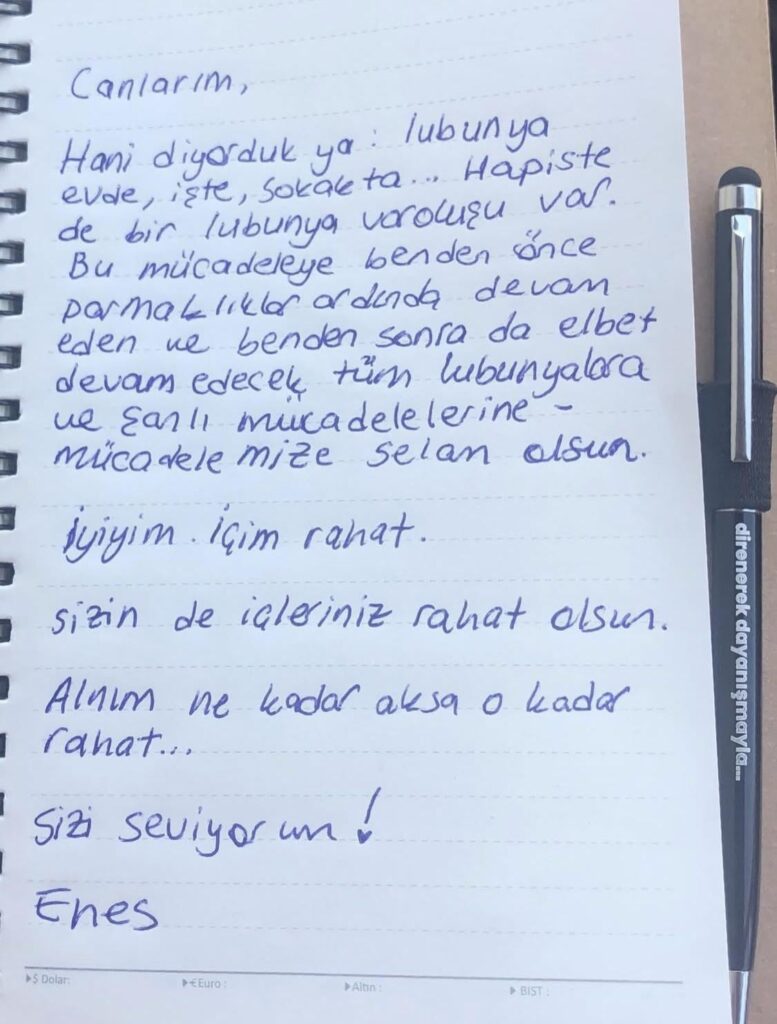 Canlarım,
Hani diyorduk ya: lubunya
evde, işte, sokakta... Hapiste
de bir lubunya varoluşu var.
Bu mücadeleye benden önce
parmaklıklar ardında devam
eden ve benden sonra da elbet
devam edecek tüm lubunyalara
ve şanlı mücadelelerine -
mücadelemize selam olsun.
İyiyim. İçim rahat.
Sizin de içleriniz rahat olsun.
Alnım ne kadar aksa o kadar
rahat...
Sizi seviyorum!
Enes
$ Dolar:
€Euro :
Altın :
BIST :
direnerek dayanışmayla...